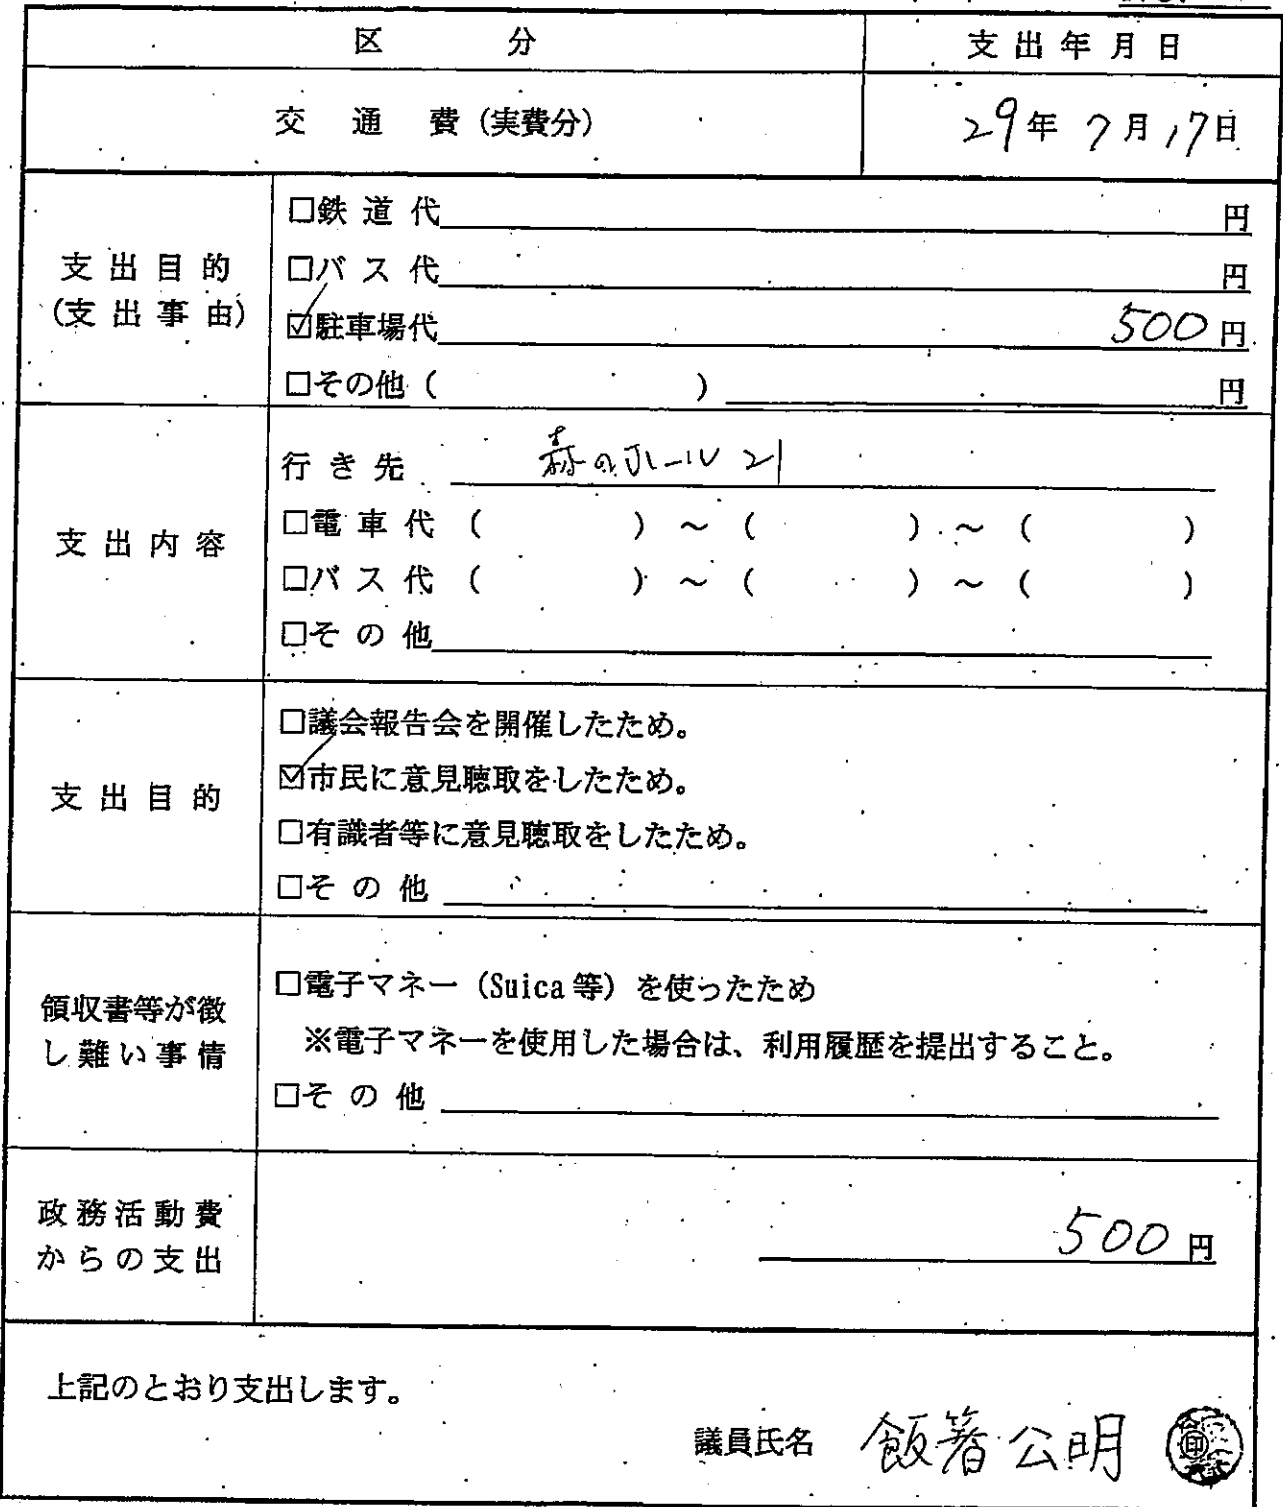 区 分 支出年月日
交 通 費（実費分） 29年 7月 17日
支出目的
（支出事由）
□鉄 道 代 円
□バ ス 代 円
☑駐車場代 500円
□その他（ ） 円
支出内容
行き先 森のホール21
□電 車 代（ ）～（ ）～（ ）
□バ ス 代（ ）～（ ）～（ ）
□そ の 他
支出目的
□議会報告会を開催したため。
☑市民に意見聴取をしたため。
□有識者等に意見聴取をしたため。
□そ の 他
領収書等が徴
し難い事情
□電子マネー（Suica等）を使ったため
※電子マネーを使用した場合は、利用履歴を提出すること。
□そ の 他
政務活動費
からの支出
500円
上記のとおり支出します。
議員氏名 飯箸公明 印